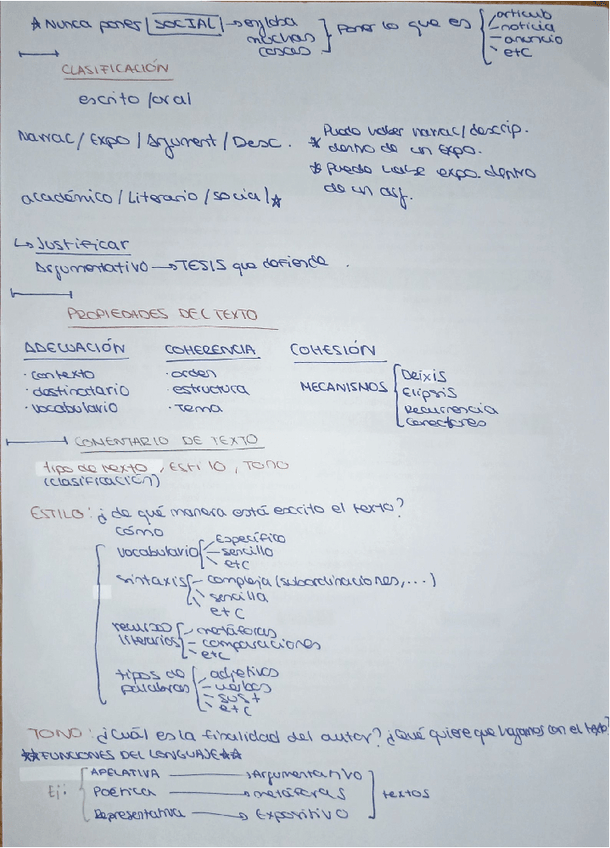 * Nunca poner SOCIAL → engloba muchas cosas } Poner lo que es { articulo
noticia
anuncio
etc
CLASIFICACIÓN
escrito/oral
Narrac/Expo/Argument/Desc.
* Puedo haber narrac/descrip. dentro de un expo.
* Puedo haber expo. dentro de un arg.
académico/Literario/social *
↳ Justificar
Argumentativo → TESIS que defienda.
PROPIEDADES DEL TEXTO
ADECUACIÓN COHERENCIA COHESIÓN
· contexto · orden
· destinatario · estructura
· vocabulario · tema
MECANISMOS { Deixis
Elipsis
Recurrencia
Conectores
COMENTARIO DE TEXTO
tipo de texto, ESTILO, TONO
(clasificación)
ESTILO: ¿de qué manera está escrito el texto?
cómo
vocabulario { Específico
sencillo
etc
sintaxis { compleja (subordinaciones,...)
sencilla
etc
recursos literarios { metáforas
comparaciones
etc
tipos de palabras { adjetivos
verbos
sust
etc
TONO: ¿Cuál es la finalidad del autor? ¿Qué quiere que hagamos con el texto?
**FUNCIONES DEL LENGUAJE**
Ej: { APELATIVA → Argumentativo
Poética → metáforas } textos
Representativa → Expositivo